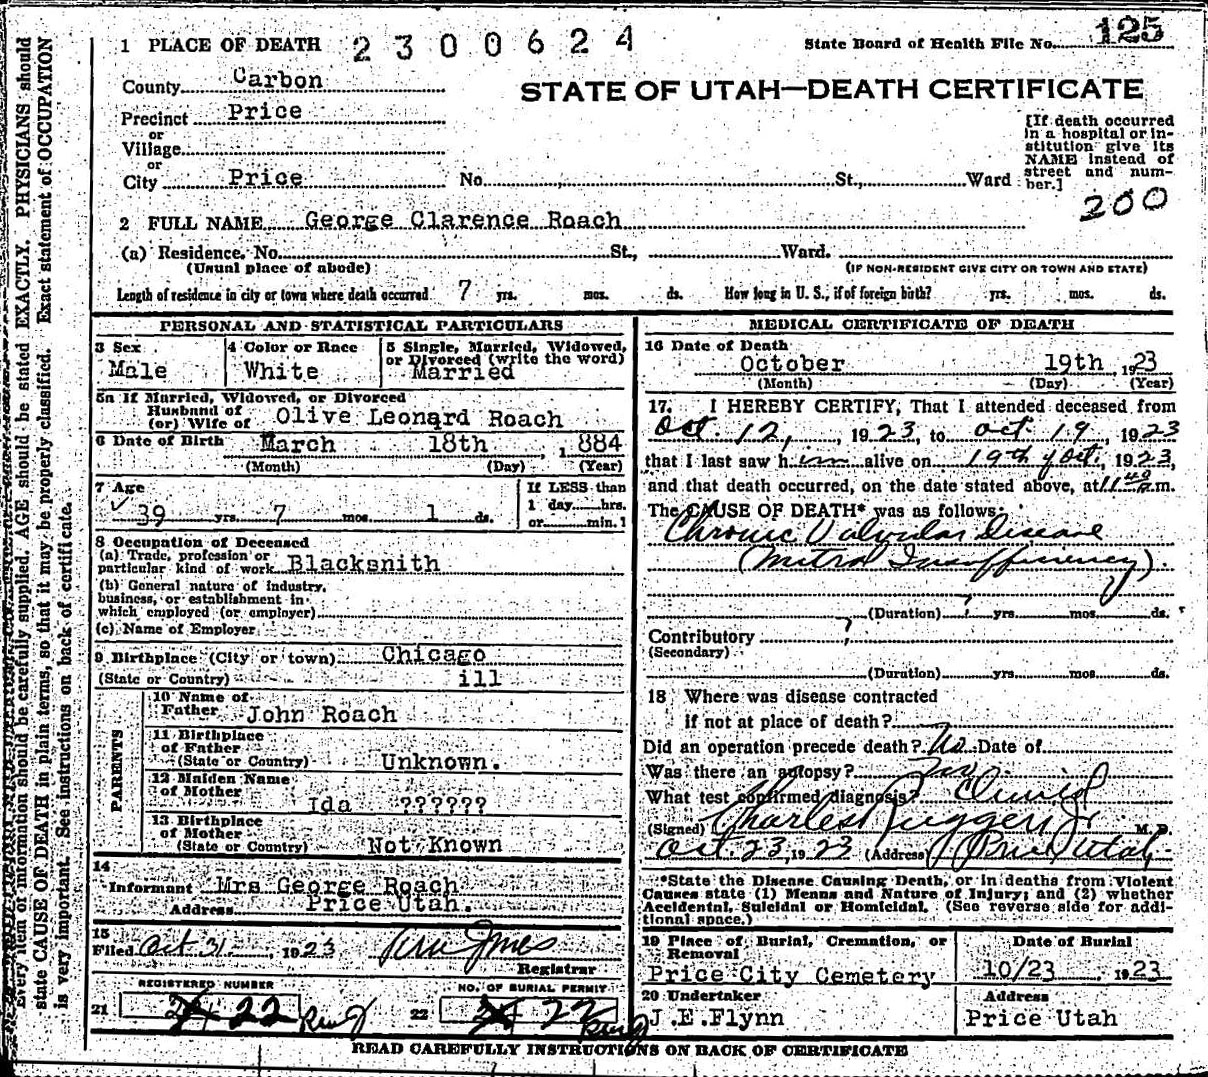 1 PLACE OF DEATH 2300624
State Board of Health File No. 125
County Carbon
STATE OF UTAH—DEATH CERTIFICATE
Precinct Price
or
Village
or
City Price No. St., Ward
[If death occurred
in a hospital or in-
stitution give its
NAME instead of
street and num-
ber.]
200
2 FULL NAME George Clarence Roach
(a) Residence. No. St., Ward.
(Usual place of abode) (IF NON-RESIDENT GIVE CITY OR TOWN AND STATE)
Length of residence in city or town where death occurred 7 yrs. mos. ds. How long in U. S., if of foreign birth? yrs. mos. ds.
PERSONAL AND STATISTICAL PARTICULARS
3 Sex
Male
4 Color or Race
White
5 Single, Married, Widowed,
or Divorced (write the word)
Married
5a If Married, Widowed, or Divorced
Husband of
(or) Wife of Olive Leonard Roach
6 Date of Birth March 18th, 1884
(Month) (Day) (Year)
7 Age
39 yrs. 7 mos. 1 ds.
If LESS than
1 day hrs.
or min.?
8 Occupation of Deceased
(a) Trade, profession or
particular kind of work Blacksmith
(b) General nature of industry,
business, or establishment in
which employed (or employer)
(c) Name of Employer
9 Birthplace (City or town) Chicago
(State or Country) ill
PARENTS
10 Name of
Father John Roach
11 Birthplace
of Father
(State or Country) Unknown.
12 Maiden Name
of Mother Ida ??????
13 Birthplace
of Mother
(State or Country) Not Known
14
Informant Mrs George Roach
Address Price Utah.
15
Filed Oct 31, 1923
Registrar
REGISTERED NUMBER
21 22
NO. OF BURIAL PERMIT
22 22
MEDICAL CERTIFICATE OF DEATH
16 Date of Death
October 19th, 1923
(Month) (Day) (Year)
17. I HEREBY CERTIFY, That I attended deceased from
Oct. 12, 1923, to Oct 19, 1923
that I last saw him alive on 19th of Oct., 1923,
and that death occurred, on the date stated above, at 11 m.
The CAUSE OF DEATH* was as follows:
Chronic Valvular Disease
(Mitral Insufficiency)
(Duration) ? yrs. mos. ds.
Contributory ?
(Secondary)
(Duration) yrs. mos. ds.
18 Where was disease contracted
if not at place of death?
Did an operation precede death? No Date of
Was there an autopsy? No
What test confirmed diagnosis? Clinical
(Signed) Charles Ruggeri Jr M. D.
Oct. 23, 1923 (Address) Price Utah
*State the Disease Causing Death, or in deaths from Violent
Causes state (1) Means and Nature of Injury; and (2) whether
Accidental, Suicidal or Homicidal. (See reverse side for addi-
tional space.)
19 Place of Burial, Cremation, or
Removal
Price City Cemetery
Date of Burial
10/23, 1923
20 Undertaker
J.E.Flynn
Address
Price Utah
READ CAREFULLY INSTRUCTIONS ON BACK OF CERTIFICATE
Every item of information should be carefully supplied. AGE should be stated EXACTLY. PHYSICIANS should
state CAUSE OF DEATH in plain terms, so that it may be properly classified. Exact statement of OCCUPATION
is very important. See instructions on back of certificate.